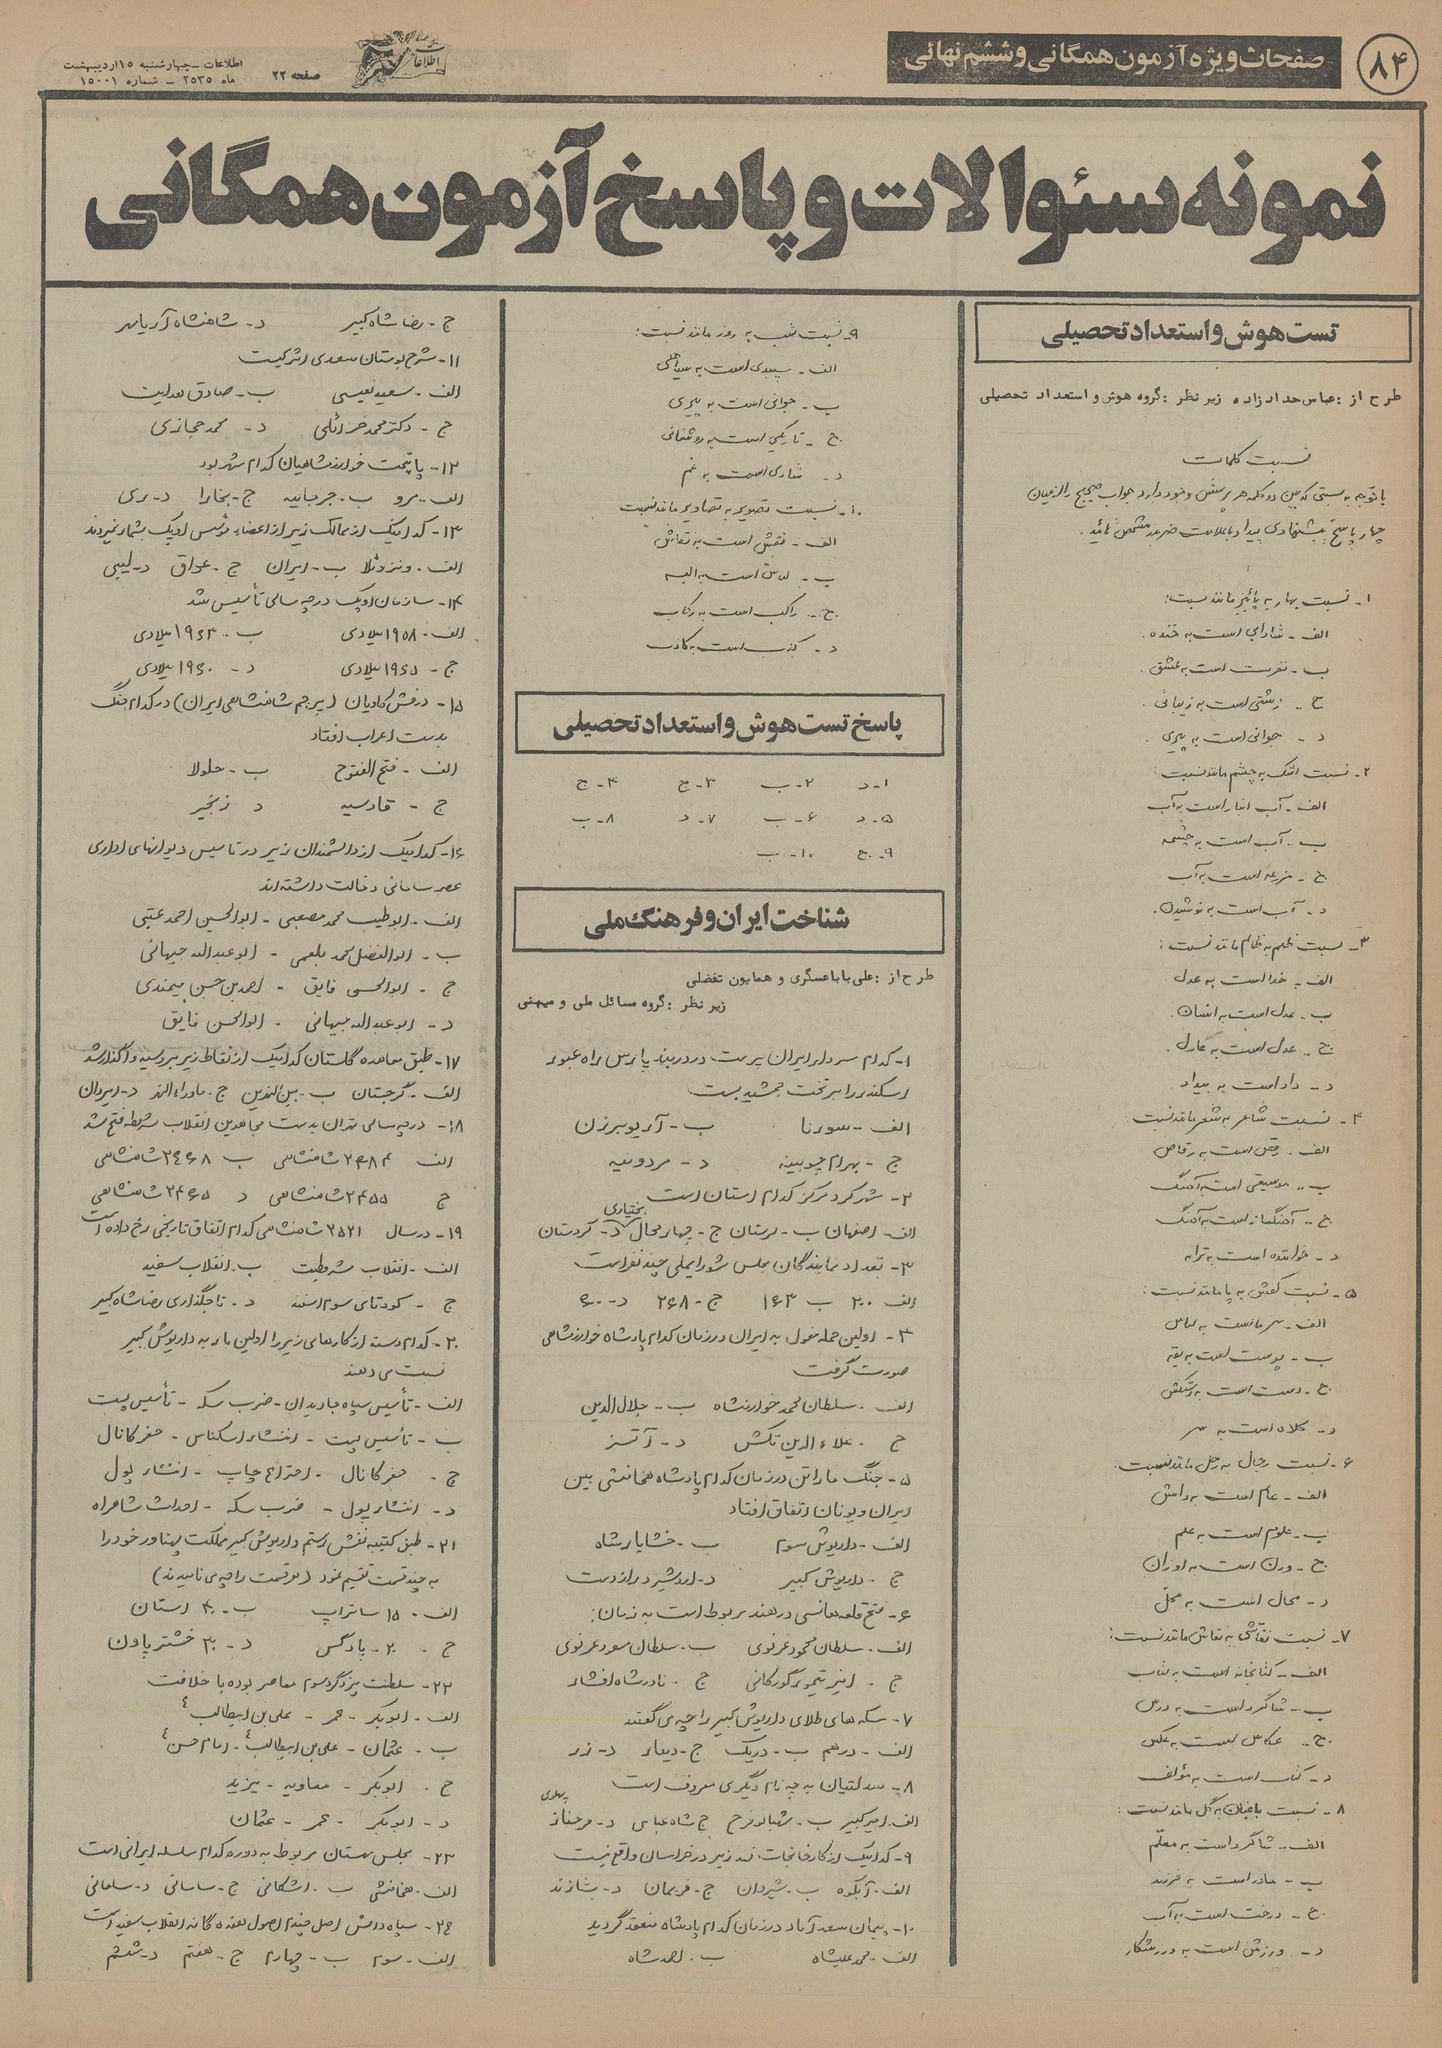 ۸۴
صفحات ویژه آزمون همگانی و ششم نهائی
صفحه ۲۲
اطلاعات – چهارشنبه ۱۵ اردیبهشت
ماه ۲۵۳۵ – شماره ۱۵۰۰۱
نمونه سئوالات و پاسخ آزمون همگانی
تست هوش و استعداد تحصیلی
طرح از : عباس حدادزاده زیر نظر : گروه هوش و استعداد تحصیلی
نسبت کلمات
با توجه به نسبتی که بین دو کلمه هر پرسش وجود دارد جواب صحیح را از میان
چهار پاسخ پیشنهادی پیدا و با علامت ضربدر مشخص نمائید.
۱- نسبت بهار به پائیز مانند نسبت:
الف - شادابی است به خنده.
ب - نفرت است به عشق.
ج - زشتی است به زیبائی.
د - جوانی است به پیری.
۲- نسبت اشک به چشم مانند نسبت:
الف - آب انبار است به آب
ب - آب است به چشمه
ج - مزرعه است به آب
د - آب است به نوشیدن.
۳- نسبت ظلم به ظالم مانند نسبت:
الف - خدا است به عدل
ب - عدل است به انسان.
ج - عدل است به عادل.
د - داد است به بیداد
۴- نسبت شاعر به شعر مانند نسبت:
الف - رقص است به رقاص
ب - موسیقی است به آهنگ
ج - آهنگساز است به آهنگ
د - خواننده است به ترانه
۵- نسبت کفش به پا مانند نسبت:
الف - سرما است به لباس
ب - پوست است به یقه
ج - دست است به دستکش
د - کلاه است به سر
۶- نسبت رجال به رجل مانند نسبت:
الف - عالم است به دانش
ب - علوم است به علم
ج - وزن است به اوزان
د - محال است به محل
۷- نسبت نقاشی به نقاش مانند نسبت:
الف - کتابخانه است به کتاب
ب - شاگرد است به درس
ج - عکاس است به عکس
د - کتاب است به مؤلف
۸- نسبت باغبان به گل مانند نسبت:
الف - شاگرد است به معلم
ب - مادر است به فرزند
ج - درخت است به آب
د - ورزش است به ورزشکار
۹- نسبت شب به روز مانند نسبت:
الف - سپیدی است به سیاهی
ب - جوانی است به پیری
ج - تاریکی است به روشنائی
د - شادی است به غم
۱۰- نسبت تصویر به تصاویر مانند نسبت
الف - نقش است به نقاش
ب - لباس است به البسه
ج - راکب است به رکاب
د - کذب است به کاذب
پاسخ تست هوش و استعداد تحصیلی
۱- د ۲- ب ۳- ج ۴- ج
۵- د ۶- ب ۷- د ۸- ب
۹- ج ۱۰- ب
شناخت ایران و فرهنگ ملی
طرح از : علی باباعسگری و همایون تفضلی
زیر نظر : گروه مسائل ملی و میهنی
۱- کدام سردار ایران پرست در دربند پارس راه عبور
اسکندر را بر تخت جمشید بست
الف - سورنا ب - آریوبرزن
ج - بهرام چوبینه د - مردونیه
۲- شهر کرد مرکز کدام استان است
الف - اصفهان ب - لرستان ج - چهار محال بختیاری د - کردستان
۳- تعداد نمایندگان مجلس شورایملی چند نفر است
الف ۲۰۰ ب ۱۶۳ ج - ۲۶۸ د - ۶۰
۴- اولین حمله مغول به ایران در زمان کدام پادشاه خوارزمشاهی
صورت گرفت
الف - سلطان محمد خوارزمشاه ب - جلال الدین
ج - علاء الدین تکش د - آتسز
۵- جنگ ماراتن در زمان کدام پادشاه هخامنشی بین
ایران و یونان اتفاق افتاد
الف - داریوش سوم ب - خشایارشاه
ج - داریوش کبیر د - اردشیر دراز دست
۶- فتح قلعه هانسی در هند مربوط است به زمان:
الف - سلطان محمود غزنوی ب - سلطان مسعود غزنوی
ج - امیر تیمور گورکانی ج - نادرشاه افشار
۷- سکه های طلای داریوش کبیر را چه می گفتند
الف - درهم ب - دریک ج - دینار د - زر
۸- سد لتیان به چه نام دیگری معروف است
الف - امیرکبیر ب - شهبانو فرح ج شاه عباس د - فرحناز پهلوی
۹- کدامیک از کارخانجات قند زیر در خراسان واقع نیست
الف - آبکوه ب - شیروان ج - فریمان د - شازند
۱۰- پیمان سعد آباد در زمان کدام پادشاه منعقد گردید
الف - محمد علیشاه ب - احمد شاه
ج - رضا شاه کبیر د - شاهنشاه آریامهر
۱۱- شرح بوستان سعدی اثر کیست
الف - سعید نفیسی ب - صادق هدایت
ج - دکتر محمد خزائلی د - محمد حجازی
۱۲- پایتخت خوارزمشاهیان کدام شهر بود
الف - مرو ب - جرجانیه ج - بخارا د - ری
۱۳- کدامیک از ممالک زیر از اعضاء مؤسس اوپک بشمار نمیروند
الف - ونزوئلا ب - ایران ج - عراق د - لیبی
۱۴- سازمان اوپک در چه سالی تأسیس شد
الف - ۱۹۵۸ میلادی ب - ۱۹۶۳ میلادی
ج - ۱۹۶۵ میلادی د - ۱۹۶۰ میلادی
۱۵- درفش کاویان (پرچم شاهنشاهی ایران) در کدام جنگ
بدست اعراب افتاد
الف - فتح الفتوح ب - جلولا
ج - قادسیه د زنجیر
۱۶- کدامیک از دانشمندان زیر در تأسیس دیوانهای اداری
عصر سامانی دخالت داشته اند
الف - ابوطیب محمد مصعبی - ابوالحسین احمد عتبی
ب - ابوالفضل محمد بلعمی - ابوعبدالله جیهانی
ج - ابوالحسن فایق - احمد بن حسن میمندی
د - ابوعبدالله جیهانی - ابوالحسن فایق
۱۷- طبق معاهده گلستان کدامیک از نقاط زیر بروسیه واگذار شد
الف - گرجستان ب - بین النهرین ج - ماوراء النهر د - ایروان
۱۸- در چه سالی تهران بدست مجاهدین انقلاب مشروطه فتح شد
الف ۲۴۸۴ شاهنشاهی ب ۲۴۶۸ شاهنشاهی
ج ۲۴۵۵ شاهنشاهی د ۲۴۶۵ شاهنشاهی
۱۹- در سال ۲۵۲۱ شاهنشاهی کدام اتفاق تاریخی رخ داده است
الف - انقلاب مشروطیت ب - انقلاب سفید
ج - کودتای سوم اسفند د - تاجگذاری رضا شاه کبیر
۲۰- کدام دسته از کارهای زیر را اولین بار به داریوش کبیر
نسبت می دهند
الف - تأسیس سپاه جاویدان - ضرب سکه - تأسیس پست
ب - تأسیس پست - انتشار اسکناس - حفر کانال
ج - حفر کانال - اختراع چاپ - انتشار پول
د - انتشار پول - ضرب سکه - احداث شاهراه
۲۱- طبق کتیبه نقش رستم داریوش کبیر مملکت پهناور خود را
به چند قسمت تقسیم نمود (هر قسمت را چه می نامیدند)
الف - ۱۵ ساتراپ ب - ۴۰ استان
ج - ۲۰ پادگس د - ۳۰ خشتر پاون
۲۲- سلطنت یزدگرد سوم معاصر بوده با خلافت
الف - ابوبکر - عمر - علی بن ابیطالب ع
ب - عثمان - علی بن ابیطالب ع - امام حسن ع
ج - ابوبکر - معاویه - یزید
د - ابوبکر - عمر - عثمان
۲۳- مجلس مهستان مربوط به دوره کدام سلسله ایرانی است
الف - هخامنشی ب - اشکانی ج - ساسانی د - سامانی
۲۴- سپاه دانش اصل چندم اصول هفده گانه انقلاب سفید است
الف - سوم ب - چهارم ج - هفتم د - ششم